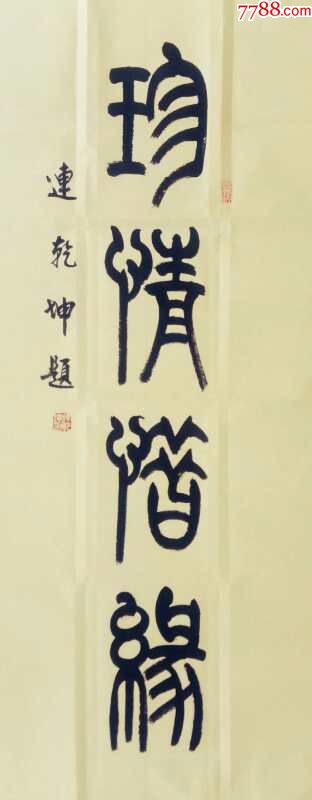 7788.com
珍情惜緣
連乾坤題